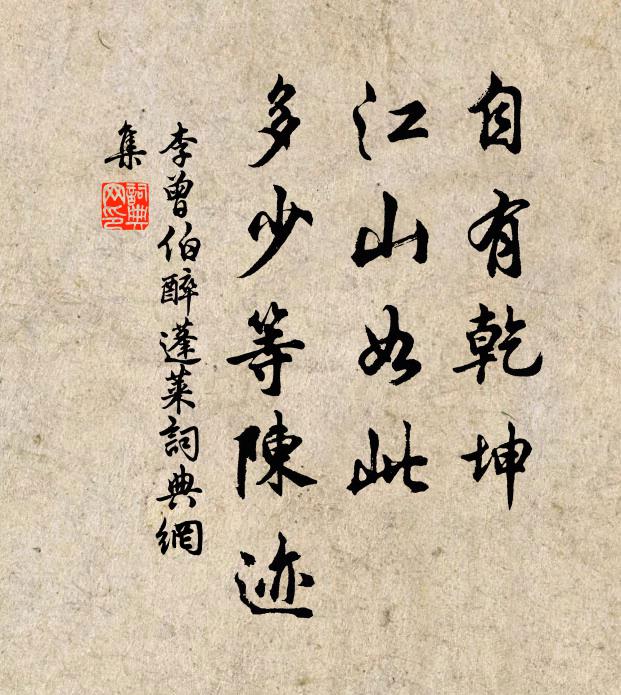 自有乾坤
江山如此
多少等陳迹
李曾伯醉蓬萊詞典網
集
詞典网印